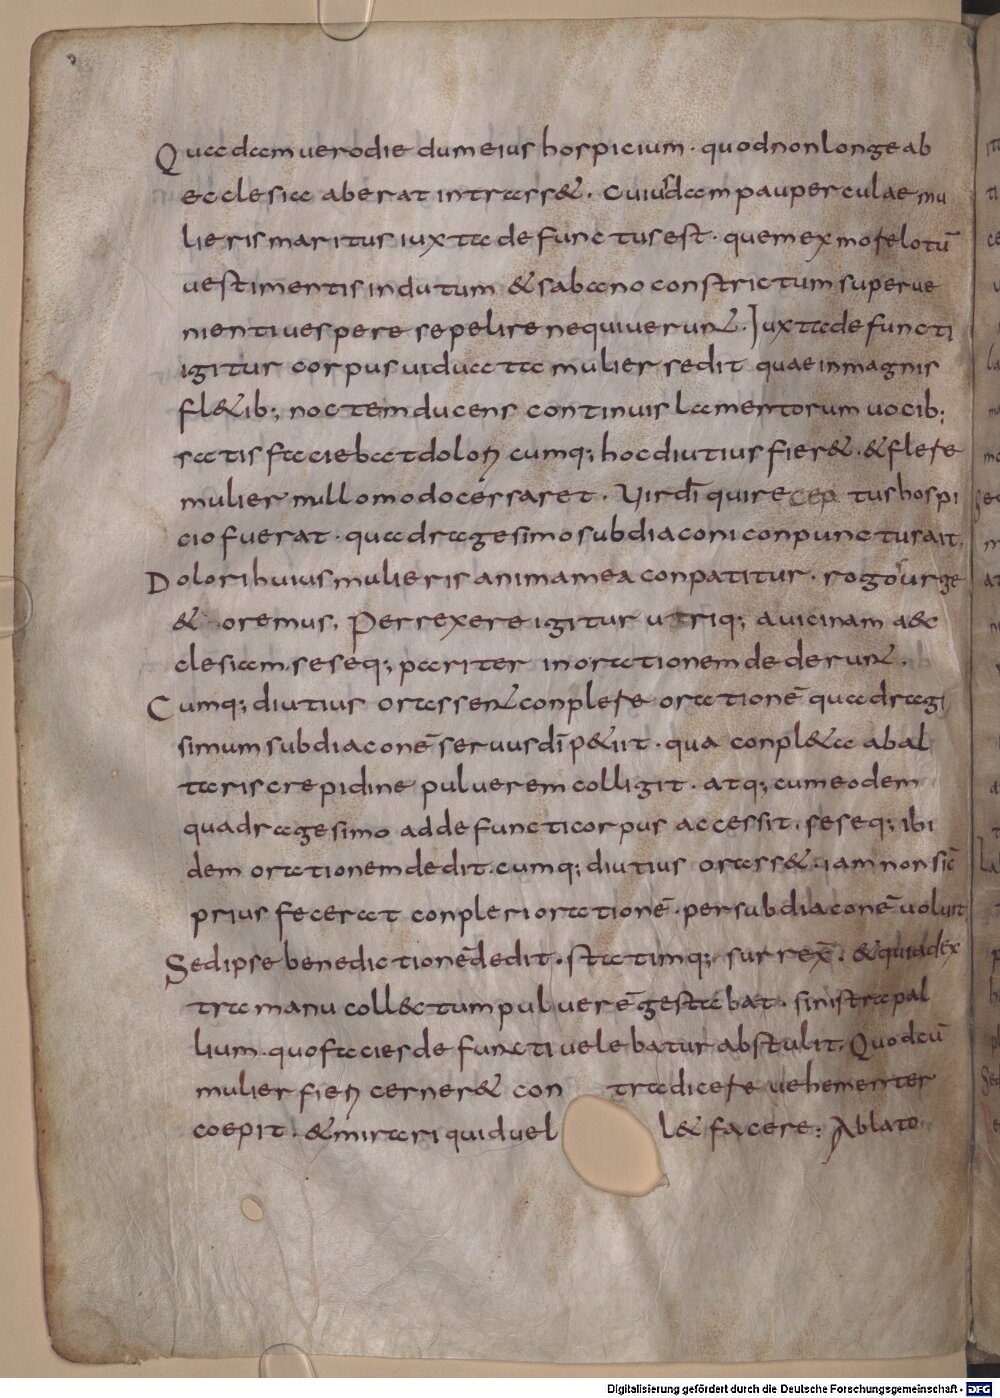 Quadam uero die dum eius hospicium · quod non longe ab
ecclesia aberat intrass&. Cuiusdam pauperculae mu
lieris maritus iuxta defunctus est · quem ex more lotū
uestimentis indutum & sabano constrictum superue
nienti uespere sepelire nequiuerunt. Iuxta defuncti
igitur corpus uiduata mulier sedit quae in magnis
fl&ib; noctem ducens continuis lamentorum uocib;
satis faciebat dolori cumq; hoc diutius fier& · & flere
mulier nullomodo cessaret. Uir dī qui receptus hospi
cio fuerat · quadragesimo subdiaconi conpunctus ait.
Dolori huius mulieris anima mea conpatitur · rogo surge
& oremus. Perrexere igitur utriq; a uicinam aec
clesiam. seseq; pariter in orationem dederunt.
Cumq; diutius orassent conplere orationē quadragi
simum subdiaconē seruus dī p&iit · qua conpl&a ab al
taris crepidine puluerem colligit · atq; cum eodem
quadragesimo ad defuncti corpus accessit. seseq; ibi
dem orationem dedit. cumq; diutius orass& · iam non sic̄
prius fecerat conpleri orationē · per subdiaconē uoluit
Sed ipse benedictionē dedit. statimq; surrex̄ . & quia dex
tra manu coll&tum puluerē gestabat · sinistra pal
lium · quo facies defuncti uelebatur abstulit. Quod cū
mulier fieri cerner& contradicere uehementer
coepit. & mirari quid uell& facere: Ablato
Digitalisierung gefördert durch die Deutsche Forschungsgemeinschaft - DFG